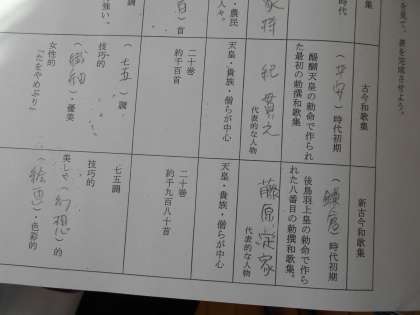 を見て、表を完成させよう。
時代
家持
・農民
人々。
百）首
強い。
古今和歌集
（平安）時代初期
醍醐天皇の勅命で作られ
た最初の勅撰和歌集
紀貫之
代表的な人物
天皇・貴族・僧らが中心
二十巻
約千百首
（七五）調
技巧的
（繊細）・優美
女性的
「たをやめぶり」
新古今和歌集
（鎌倉）時代初期
後鳥羽上皇の勅命で作ら
れた八番目の勅撰和歌集。
藤原定家
代表的な人物
天皇・貴族・僧らが中心
二十巻
約千九百八十首
七五調
技巧的
美しさ（幻想）的
（絵画）・色彩的